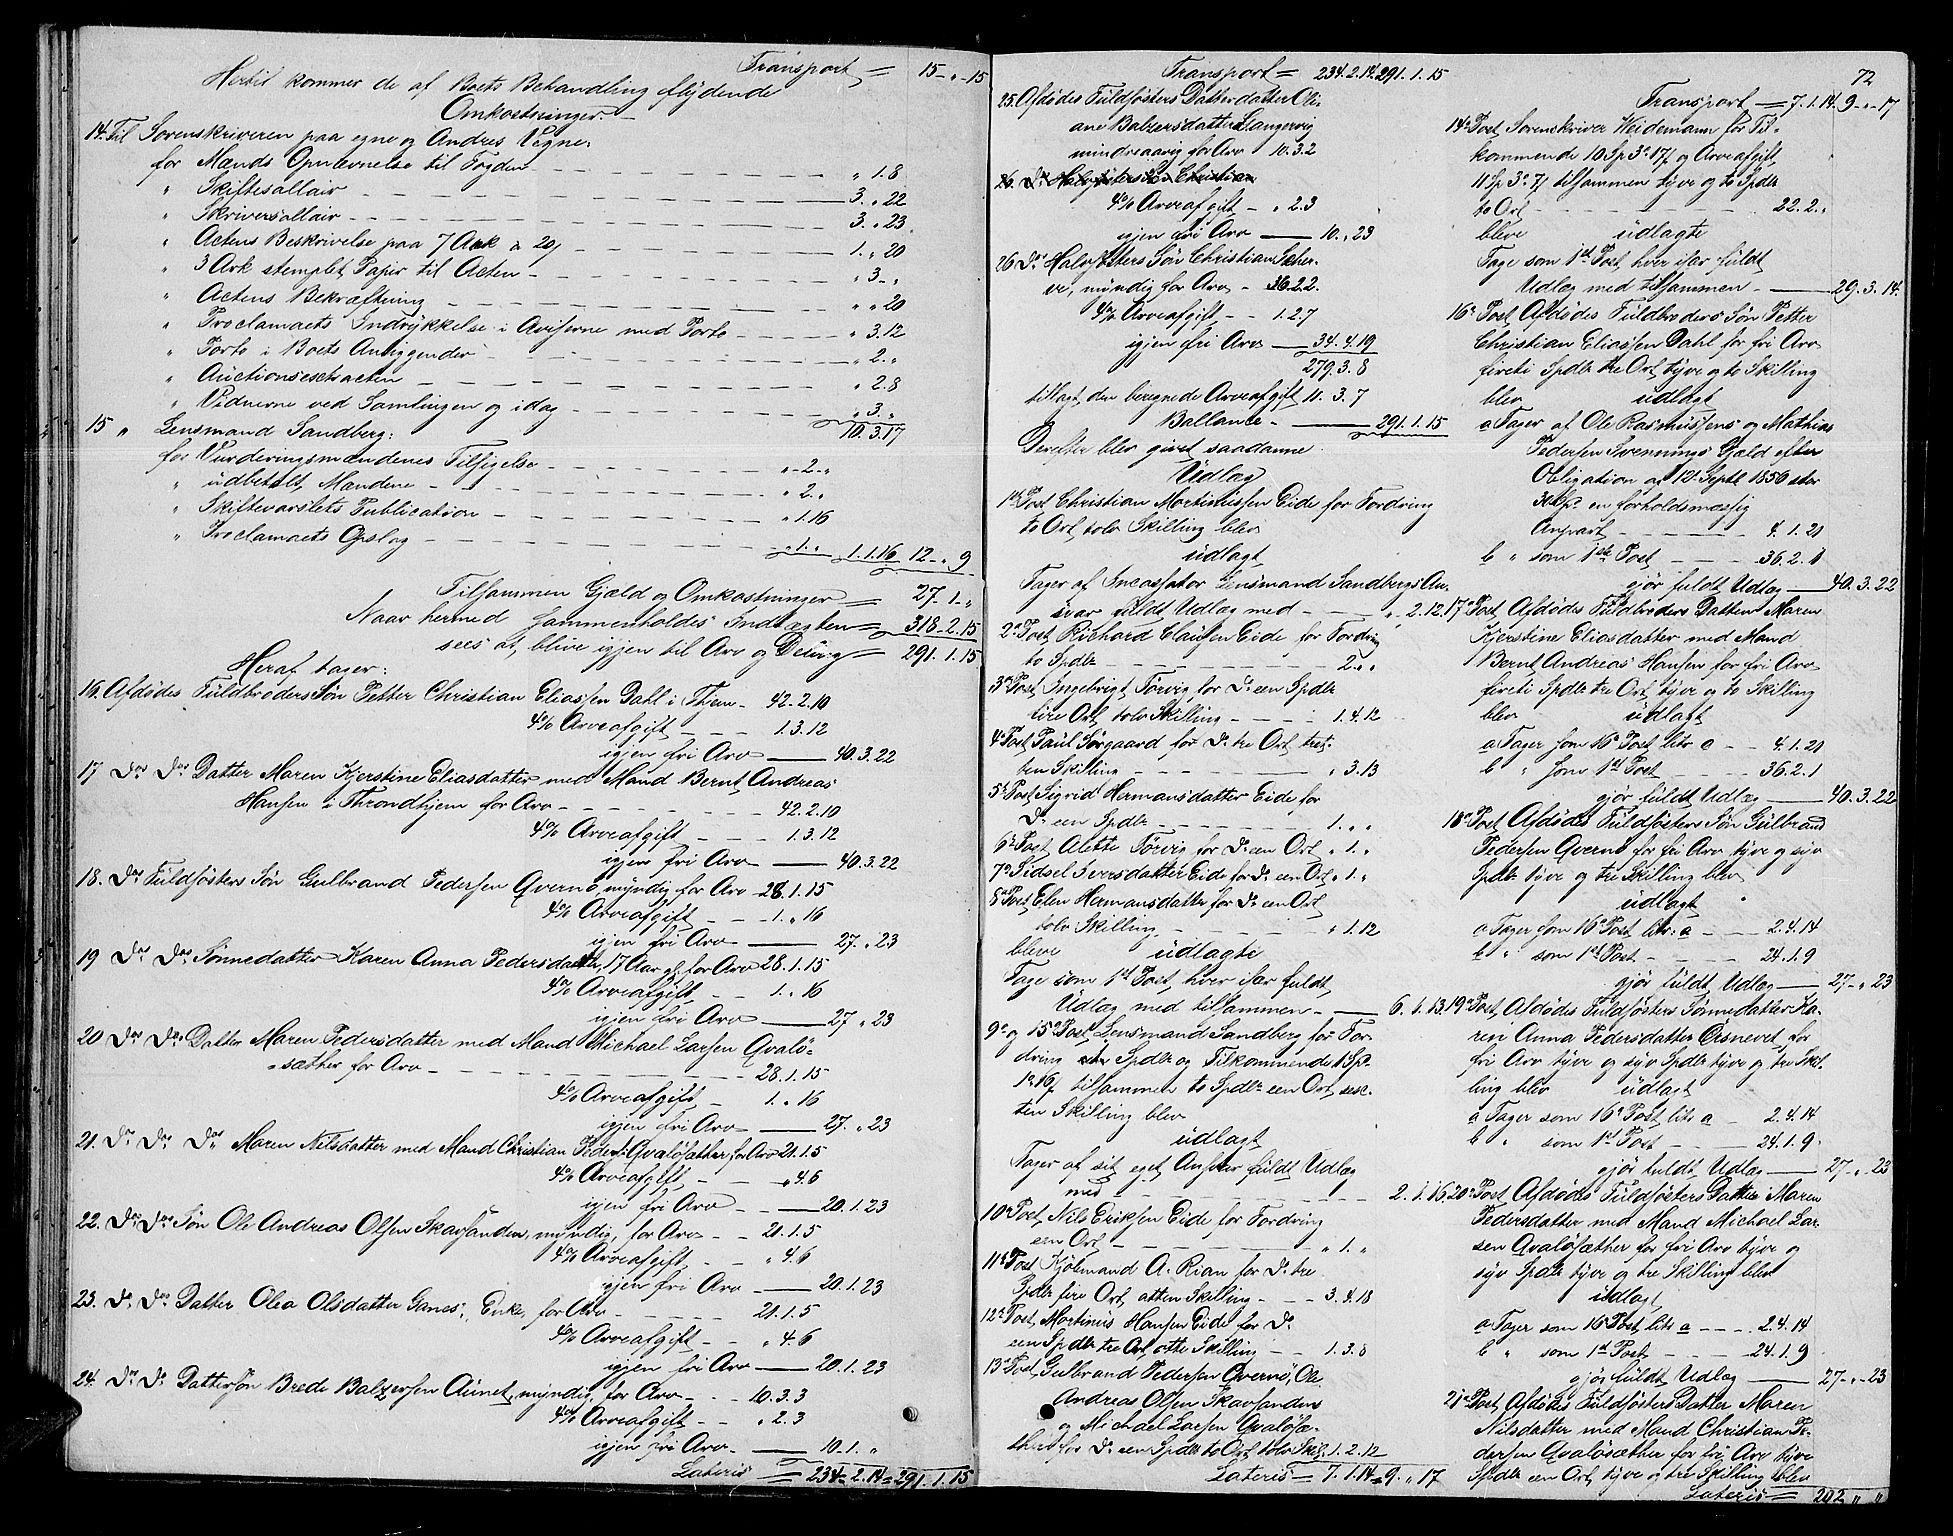 Transport = 15 - „ - 15
Hertil kommer de af Boets Behandling flydende
Omkostninger
14. Til Sorenskriveren paa egne og Andres Vegne:
for Mænds Opnævnelse til Fogden - - - „ 1. 8
„ Skiftesallair - - - 3. „ 22
„ Skriversallair - - - 3. „ 23
„ Actens Beskrivelse paa 7 Ark a 20 - - - 1. „ 20
„ 3 Ark stemplet Papir til Acten - - - „ 3 - „
„ Actens Bekræftning - - - „ „ 20
„ Proclamaets Indrykkelse i Aviserne med Porto - - - „ 3. 12
„ Porto i Boets Anliggender - - - „ 2. „
„ Auctionsextracten - - - „ 2. 8
„ Vidnerne ved Samlingen og idag - - - „ 3. „
10. 3. 17
15 „ Lensmand Sandberg:
for Vurderingsmændenes Tilsigelse - - - „ - 2 - „
„ udbetalt Mændene - - - „ 2. „
„ Skiftevarslets Publication - - - „ 1. 16
„ Proclamaets Opslag - - - „ 1. „ 1. 1. 16 12 - „ 9
Tilsammen Gjæld og Omkostninger = 27 - 1 - „
Naar hermed sammenholdes Indtægten = 318 - 2. 15
sees at blive igjen til Arv og Deling = 291. 1. 15
Heraf tager:
16. Afdødes Fuldbroders Søn Petter Christian Eliassen Dahl i Thjem - 42 - 2. 10
4% Arveafgift - - - 1. 3. 12
igjen fri Arv - 40. 3. 22
17 Do Do Datter Maren Kjerstine Eliasdatter med Mand Bernt Andreas
Hansen i Throndhjem for Arv - - - 42. 2. 10
4% Arveafgift - - 1. 3. 12
igjen fri Arv - 40. 3. 22
18. Do Fuldsøsters Søn Gulbrand Pedersen Qvernø, myndig for Arv 28. 1. 15
4% Arveafgift - - - 1. „ 16
igjen fri Arv - 27. „ 23
19 Do Do Sønnedatter Karen Anna Pedersdatter, 17 Aar gl. for Arv 28. 1. 15
4% Arveafgift - - 1. „ 16
igjen fri Arv - 27 „ 23
20 Do Do Datter Maren Pedersdatter med Mand Michael Larsen Qvalø-
sæther for Arv - - - 28. 1. 15
4% Arveafgift - - 1. „ 16
igjen fri Arv - 27. „ 23
21. Do Do Do Maren Nilsdatter med Mand Christian Peders: Qvaløsæther for Arv 21. 1. 5
4% Arveafgift - - „ 4. 6
igjen fri Arv - - 20. 1. 23
22. Do Do Søn Ole Andreas Olsen Skavsanden, myndig, for Arv - - 21. 1. 5
4% Arveafgift - - „ 4. 6
igjen fri Arv - 20. 1. 23
23. Do Do Datter Olea Olsdatter Ganes:, Enke, for Arv - - - 21. 1. 5
4% Arveafgift - - „ 4. 6
igjen fri Arv - 20. 1. 23
24. Do Do Dattersøn Brede Balzersen Aunet, myndig, for Arv - - 10. 3. 3
4% Arveafgift - - „ 2. 3
igjen fri Arv - 10. 1. „
Lateris = 234 - 2. 14 = 291. 1. 15
Transport = 234. 2. 14. 291. 1. 15
25. Afdødes Fuldsøsters Datterdatter Oli-
ane Balzersdatter Langervig
mindreaarig for Arv 10. 3. 2
26. Do Halvsøsters Søn Christian
4% Arveafgift - „ 2. 3
igjen fri Arv - 10. „ 23
26 Do Halvsøsters Søn Christian Scher-
ve, myndig for Arv - 36. 2. 2.
4% Arveafgift - - 1. 2. 7
igjen fri Arv - 34. 4. 19
279. 3. 8
tillagt den beregnede Arveafgift 11. 3. 7
Ballance - 291. 1. 15
Derefter blev givet saadanne
Udlæg
1ste Post Christian Mortinussen Eide for Fordring
to Ort, tolv Skilling blev
udlagt
Tager af Incassator Lensmand Sandbergs An-
svar fuldt Udlæg med - - - „ 2. 12.
2den Post Richard Clausen Eide for Fordring
to Spdlr - - - 2. „ „
3die Post Ingebrigt Torvig for Do een Spdlr
fire Ort tolv Skilling - - - 1. 4. 12
4de Post Paul Sørgaard for Do tre Ort tret-
ten Skilling - - - „ 3. 13
5te Post Sigrid Hermansdatter Eide for
Do een Spdlr - - - 1. „ „
6te Post Alette Torvig for Do een Ort „ 1. „
7de Sidsel Iversdatter Eide for Do een Ort „ 1. „
8de Post Elen Hermansdatter for Do een Ort
tolv Skilling - - - „ 1. 12
bleve udlagte
Tage som 1st Post, hver især fuldt
Udlæg med tilsammen - 6. 1. 13.
9de og 15de Post Lensmand Sandberg for For-
dring een Spdlr og Tilkommende 1 Sp.
1. 16 tilsammen to Spdlr een Ort sex-
ten Skilling blev
udlagt
Tager af sit eget Ansvar fuldt Udlæg
med - - - 2. 1. 16.
10de Post, Nils Eriksen Eide for Fordring
een Ort - - - „ 1. „
11te Post Kjøbmand A. Rian for Do tre
Spdlr fire Ort, atten Skilling - - - 3. 4. 18
12te Post, Mortinus Hansen Eide for Do
een Spdlr tre Ort otte Skilling - - 1. 3. 8
13de Post, Gulbrand Pedersen Qvernø, Ole
Andreas Olsen Skavsanden
og Michael Larsen Qvaløsæ-
ther for Do een Spdlr to Ort tolv Skil. 1. 2. 12
Lateris = 7. 1. 14 = 9. „ 17
72
Transport = 7. 1. 14. 9 - „ - 17
14de Post, Sorenskriver Weidemann for Til-
kommende 10 Sp 3. 17 og Arveafgift
11 Sp 3. 7 tilsammen tyve og to Spdlr
to Ort - - - 22. 2. „
bleve udlagte
Tage som 1st Post, hver især fuldt
Udlæg med tilsammen - 29. 3. 14.
16de Post, Afdødes Fuldbroders Søn Petter
Christian Eliassen Dahl for fri Arv
fireti Spdlr tre Ort, tyve og to Skilling
blev udlagt
a Tager af Ole Rasmussens og Mathias
Pedersen Svennings Gjæld efter
Obligation af 12 Septbr 1856 stor
30 Sp. en forholdsmæssig
Anpart - - - 4. 1. 21
b „ som 1ste Post - - 36. 2. 1
gjør fuldt Udlæg - 40. 3. 22
17de Post Afdødes Fuldbroders Datter Maren
Kjerstine Eliasdatter med Mand
Bernt Andreas Hansen for fri Arv
firti Spdlr tre Ort, tyve og to Skilling
blev udlagt
a Tager som 16de Post litr a - - 4. 1. 21
b „ som 1st Post - - - 36. 2. 1
gjør fuldt Udlæg - 40. 3. 22
18de Post Afdødes Fuldsøsters Søn Gulbrand
Pedersen Qvernø for fri Arv tyve og syv
Spdlr tyve og tre Skilling blev
udlagt
a Tager som 16de Post litr: a - - 2. 4. 14
b „ som 1st Post - - - 24. 1. 9
gjør fuldt Udlæg - 27 - „ 23
19de Post, Afdødes Fuldsøsters Sønnedatter Ka-
ren Anna Pedersdatter Eisnevet, for
fri Arv tyve og syv Spdlr tyve og tre Skil-
ling blev udlagt
a Tager som 16de Post litr a - 2. 4. 14
b „ som 1st Post - - - 24. 1. 9
gjør fuldt Udlæg - 27 - „ 23
20de Post, Afdødes Fuldsøsters Datter Maren
Pedersdatter med Mand Michael Lar-
sen Qvaløsæther for fri Arv tyve og
syv Spdlr tyve og tre Skilling blev
udlagt
a Tager som 16de Post litr a - - - 2. 4. 14
b „ som 1st Post - - - 24. 1. 9
gjør fuldt Udlæg - 27 - „ - 23
21de Post Afdødes Fuldsøsters Datter Maren
Nilsdatter med Mand Christian Pe-
dersen Qvaløsæther for fri Arv tyve
Spdlr een Ort, tyve og tre Skilling blev
Lateris = 202 „ „